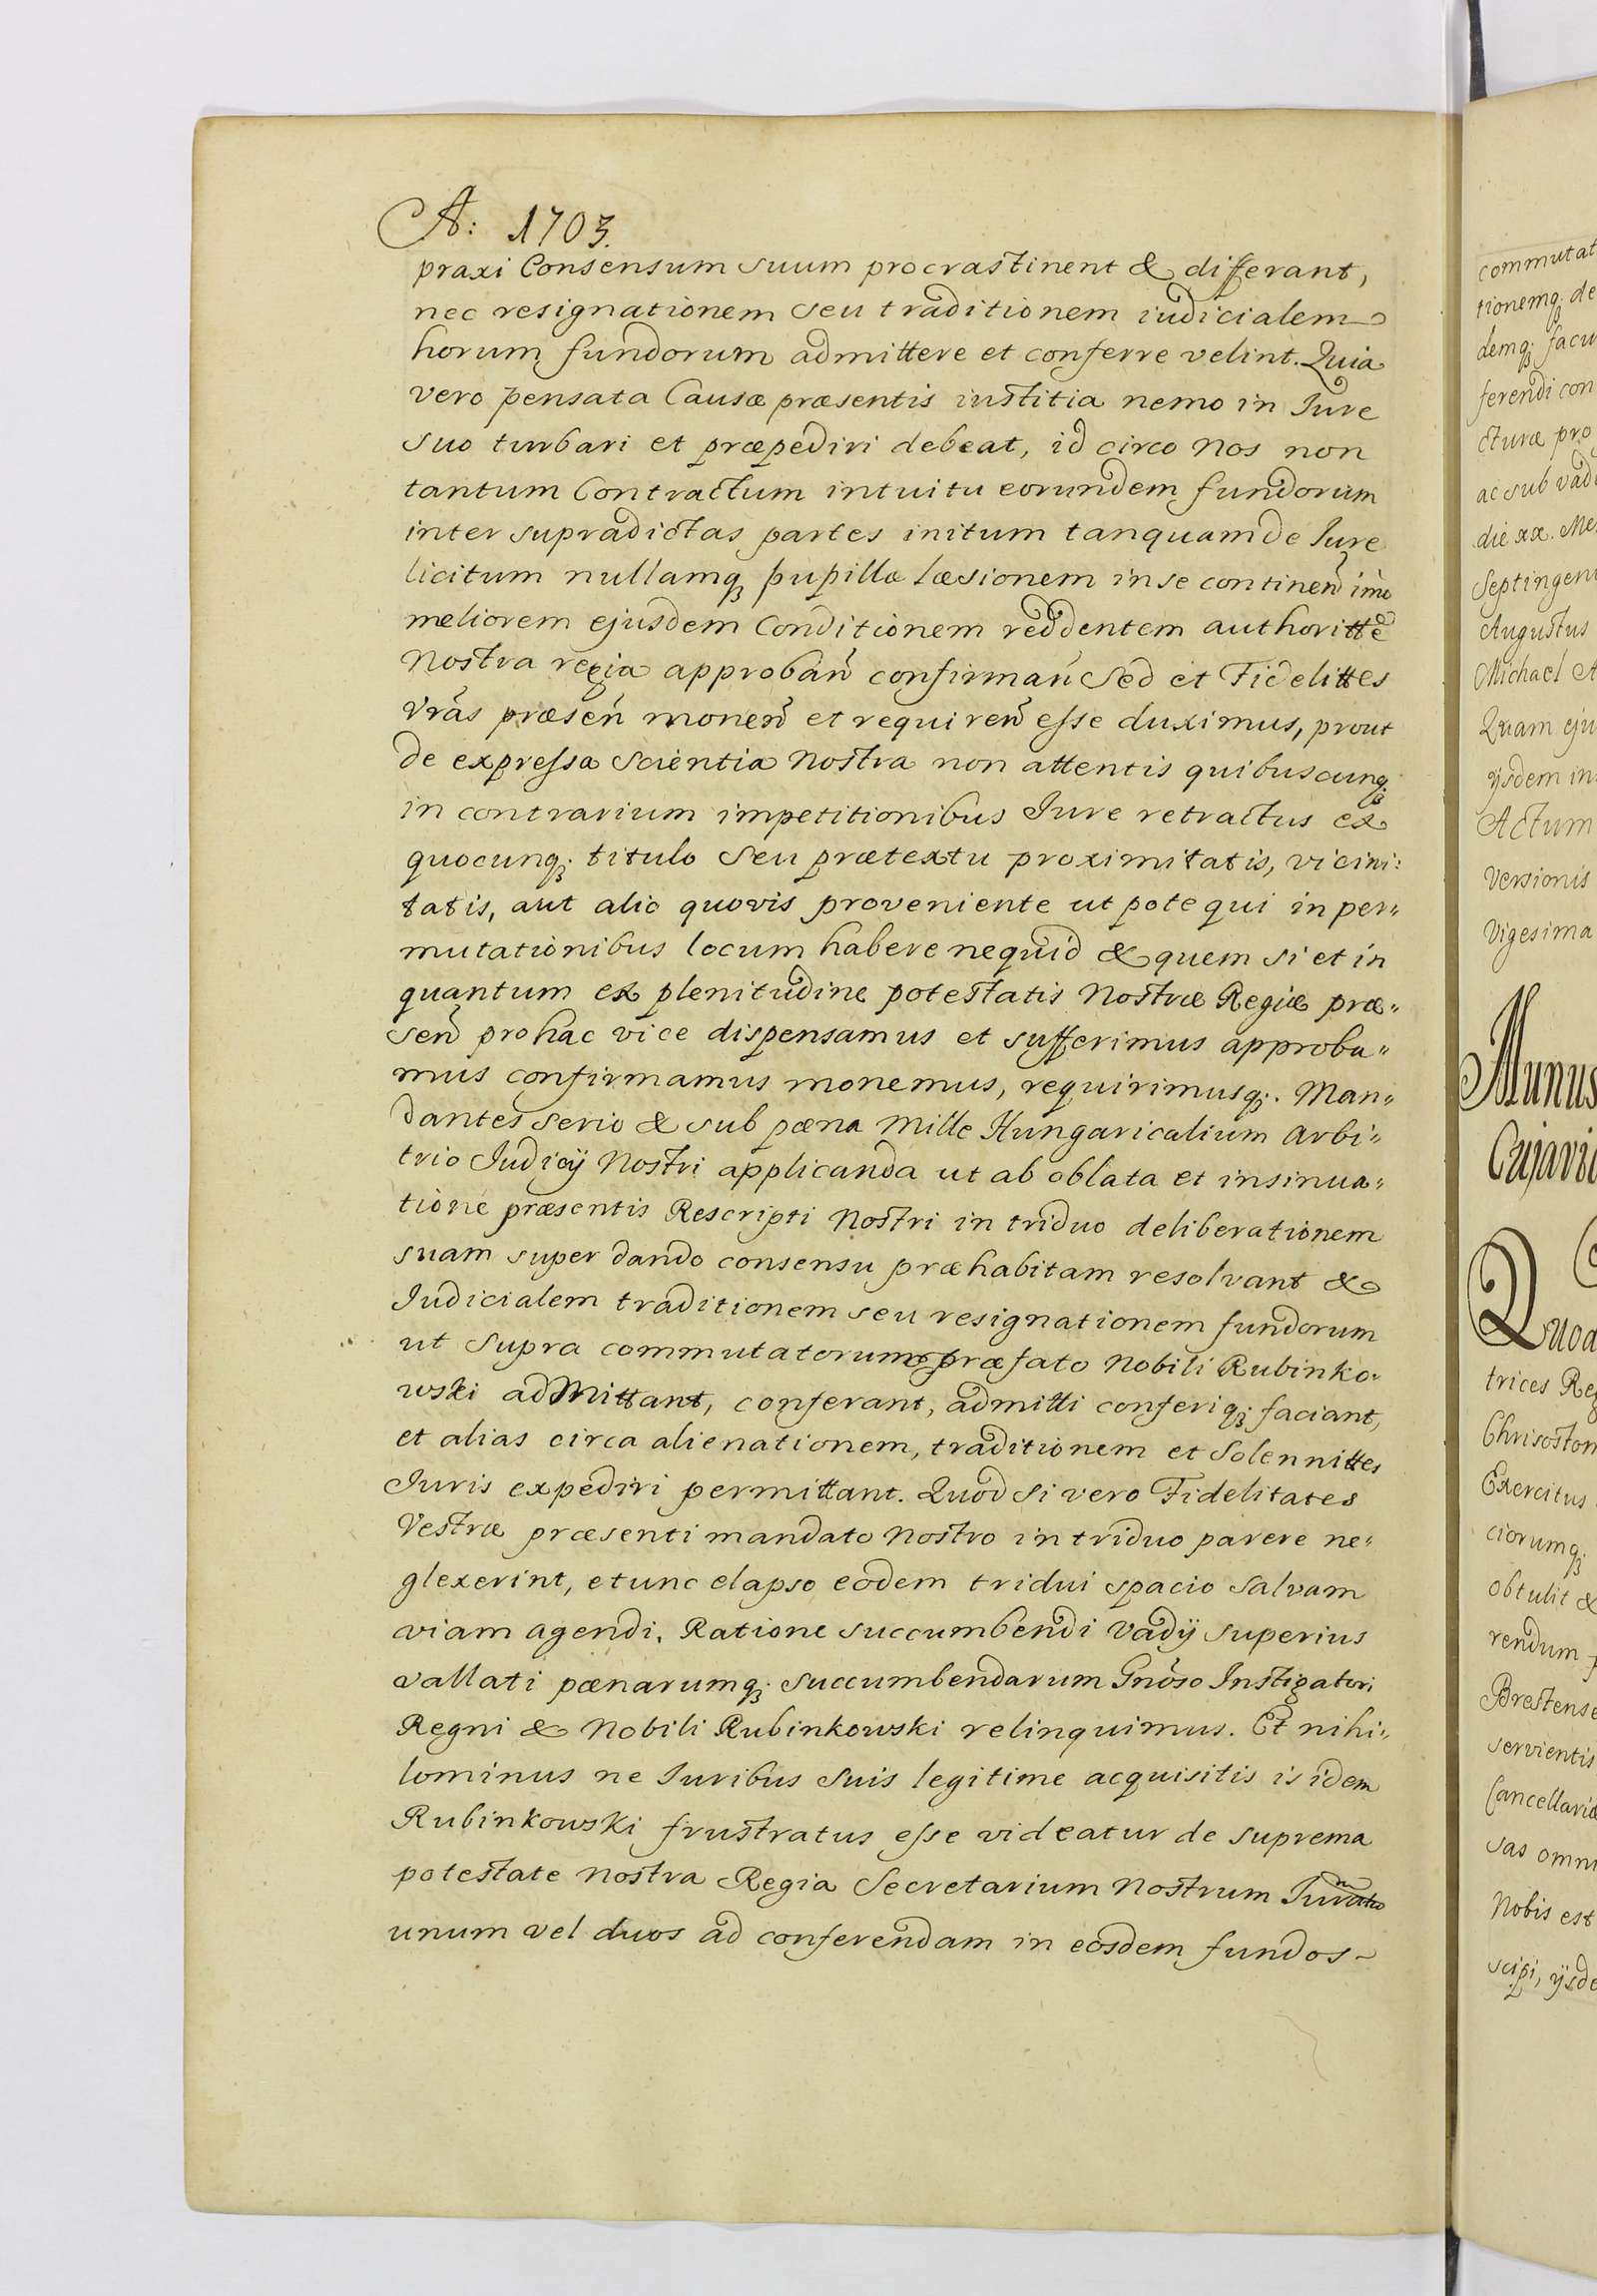 A: 1703.
praxi Consensum suum procrastinent & differant,
nec resignationem seu traditionem iudicialem
horum fundorum admittere et conferre velint. Quia
vero pensata Causæ præsentis iustitia nemo in Iure
suo turbari et præpediri debeat, id circo Nos non
tantum Contractum intuitu eorundem fundorum
inter supradictas partes initum tanquam de Iure
licitum nullamq; pupillæ læsionem in se continen̄ imo
meliorem ejusdem Conditionem reddentem authoritte
Nostra regia approban̄ confirman̄ Sed et Fidelittes
Vrãs præsen̄ monen̄ et requiren̄ esse duximus, prout
de expressa Scientia Nostra non attentis quibuscunq;
in contrarium impetitionibus Iure retractus ex
quocunq; titulo seu prætextu proximitatis, vicini:
tatis, aut alio quovis proveniente ut pote qui in per„
mutationibus locum habere nequid & quem si et in
quantum ex plenitudine potestatis Nostræ Regiæ præ„
sen̄ pro hac vice dispensamus et sufferimus approba„
mus confirmamus monemus, requirimusq;. Man„
dantes serio & sub pæna Mille Hungaricalium arbi„
trio Iudicij Nostri applicanda ut ab oblata et insinua„
tione præsentis Rescripti Nostri in triduo deliberationem
suam super dando consensu præhabitam resolvant &
Iudicialem traditionem seu resignationem fundorum
ut supra commutatorum præfato Nobili Rubinko„
wski adMittant, conferant, admitti conferiq; faciant,
et alias circa alienationem, traditionem et Solennittes
Iuris expediri permittant. Quod si vero Fidelitates
Vestræ præsenti mandato Nostro in triduo parere ne„
glexerint, etunc elapso eodem tridui spacio salvam
viam agendi, Ratione succumbendi Vadij superius
vallati pænarumq; succumbendarum Gnõso Instigatori
Regni & Nobili Rubinkowski relinquimus. Et nihi„
lominus ne Iuribus suis legitime acquisitis is idem
Rubinkowski frustratus esse videatur de suprema
potestate Nostra Regia Secretarium Nostrum
unum vel duos ad conferendam in eosdem fundos
commutat
tionemq; de
demq; facu
ferendi con
cturæ pro
ac sub vadi
die xx. Me
Septingen
Augustus
Michael A
Quam eju
ijsdem in
Actum
Versionis
Vigesima
Munus
Cujavi
Quod
trices Reg
Chrisostom
Exercitus
ciorumq;
obtulit &
rendum
Brestense
servientis
Cancellariæ
sas omn
Nobis est
scipi, ijsde